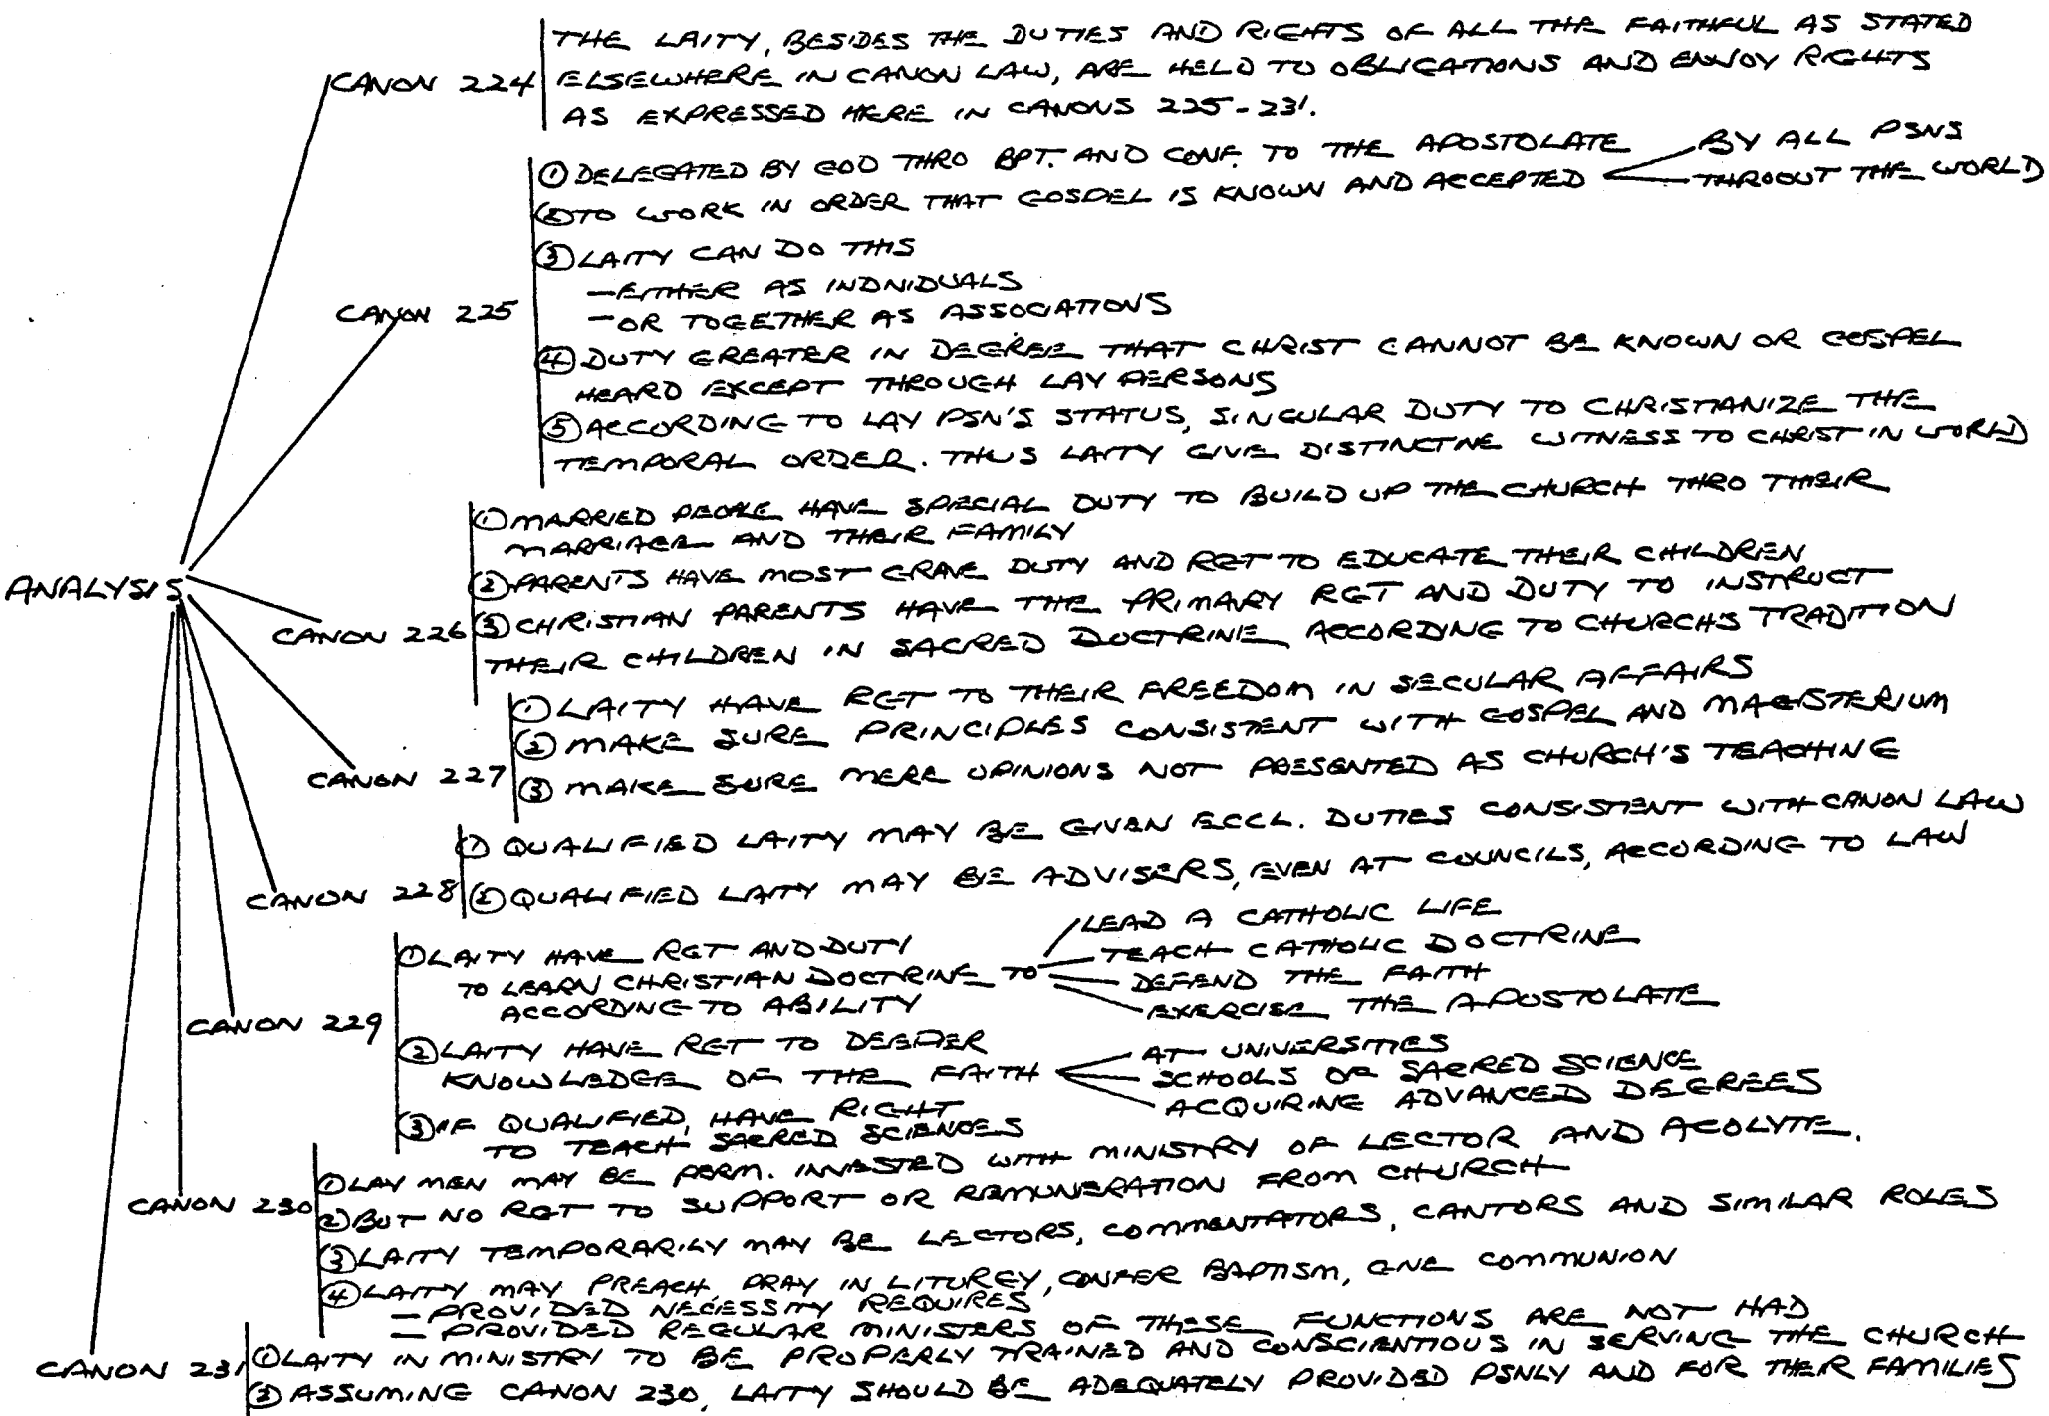 THE LAITY, BESIDES THE DUTIES AND RIGHTS OF ALL THE FAITHFUL AS STATED
CANON 224 ELSEWHERE IN CANON LAW, ARE HELD TO OBLIGATIONS AND ENJOY RIGHTS
AS EXPRESSED HERE IN CANONS 225-231.
① DELEGATED BY GOD THRO BPT. AND CONF. TO THE APOSTOLATE BY ALL PSNS
② TO WORK IN ORDER THAT GOSPEL IS KNOWN AND ACCEPTED THROOUT THE WORLD
③ LAITY CAN DO THIS
- EITHER AS INDIVIDUALS
CANON 225 - OR TOGETHER AS ASSOCIATIONS
④ DUTY GREATER IN DEGREE THAT CHRIST CANNOT BE KNOWN OR GOSPEL
HEARD EXCEPT THROUGH LAY PERSONS
⑤ ACCORDING TO LAY PSN'S STATUS, SINGULAR DUTY TO CHRISTIANIZE THE
TEMPORAL ORDER. THUS LAITY GIVE DISTINCTIVE WITNESS TO CHRIST IN WORLD
① MARRIED PEOPLE HAVE SPECIAL DUTY TO BUILD UP THE CHURCH THRO THEIR
MARRIAGE AND THEIR FAMILY
ANALYSIS ② PARENTS HAVE MOST GRAVE DUTY AND RGT TO EDUCATE THEIR CHILDREN
CANON 226 ③ CHRISTIAN PARENTS HAVE THE PRIMARY RGT AND DUTY TO INSTRUCT
THEIR CHILDREN IN SACRED DOCTRINE ACCORDING TO CHURCH'S TRADITION
① LAITY HAVE RGT TO THEIR FREEDOM IN SECULAR AFFAIRS
② MAKE SURE PRINCIPLES CONSISTENT WITH GOSPEL AND MAGISTERIUM
CANON 227 ③ MAKE SURE MERE OPINIONS NOT PRESENTED AS CHURCH'S TEACHING
① QUALIFIED LAITY MAY BE GIVEN ECCL. DUTIES CONSISTENT WITH CANON LAW
CANON 228 ② QUALIFIED LAITY MAY BE ADVISERS, EVEN AT COUNCILS, ACCORDING TO LAW
① LAITY HAVE RGT AND DUTY
TO LEARN CHRISTIAN DOCTRINE TO
ACCORDING TO ABILITY
LEAD A CATHOLIC LIFE
TEACH CATHOLIC DOCTRINE
DEFEND THE FAITH
EXERCISE THE APOSTOLATE
CANON 229
② LAITY HAVE RGT TO DEEPER
KNOWLEDGE OF THE FAITH
AT UNIVERSITIES
SCHOOLS OF SACRED SCIENCE
ACQUIRING ADVANCED DEGREES
③ IF QUALIFIED, HAVE RIGHT
TO TEACH SACRED SCIENCES
① LAY MEN MAY BE PERM. INVESTED WITH MINISTRY OF LECTOR AND ACOLYTE.
CANON 230 ② BUT NO RGT TO SUPPORT OR REMUNERATION FROM CHURCH
③ LAITY TEMPORARILY MAY BE LECTORS, COMMENTATORS, CANTORS AND SIMILAR ROLES
④ LAITY MAY PREACH, PRAY IN LITURGY, CONFER BAPTISM, GIVE COMMUNION
- PROVIDED NECESSITY REQUIRES
- PROVIDED REGULAR MINISTERS OF THESE FUNCTIONS ARE NOT HAD
CANON 231 ① LAITY IN MINISTRY TO BE PROPERLY TRAINED AND CONSCIENTIOUS IN SERVING THE CHURCH
② ASSUMING CANON 230, LAITY SHOULD BE ADEQUATELY PROVIDED PSNLY AND FOR THEIR FAMILIES